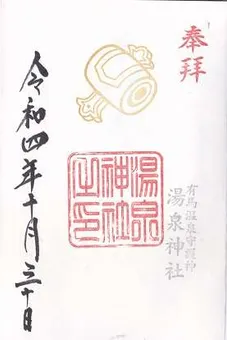 奉拝
有馬温泉守護神
湯泉神社
湯泉神社之印
令和四年十月三十日